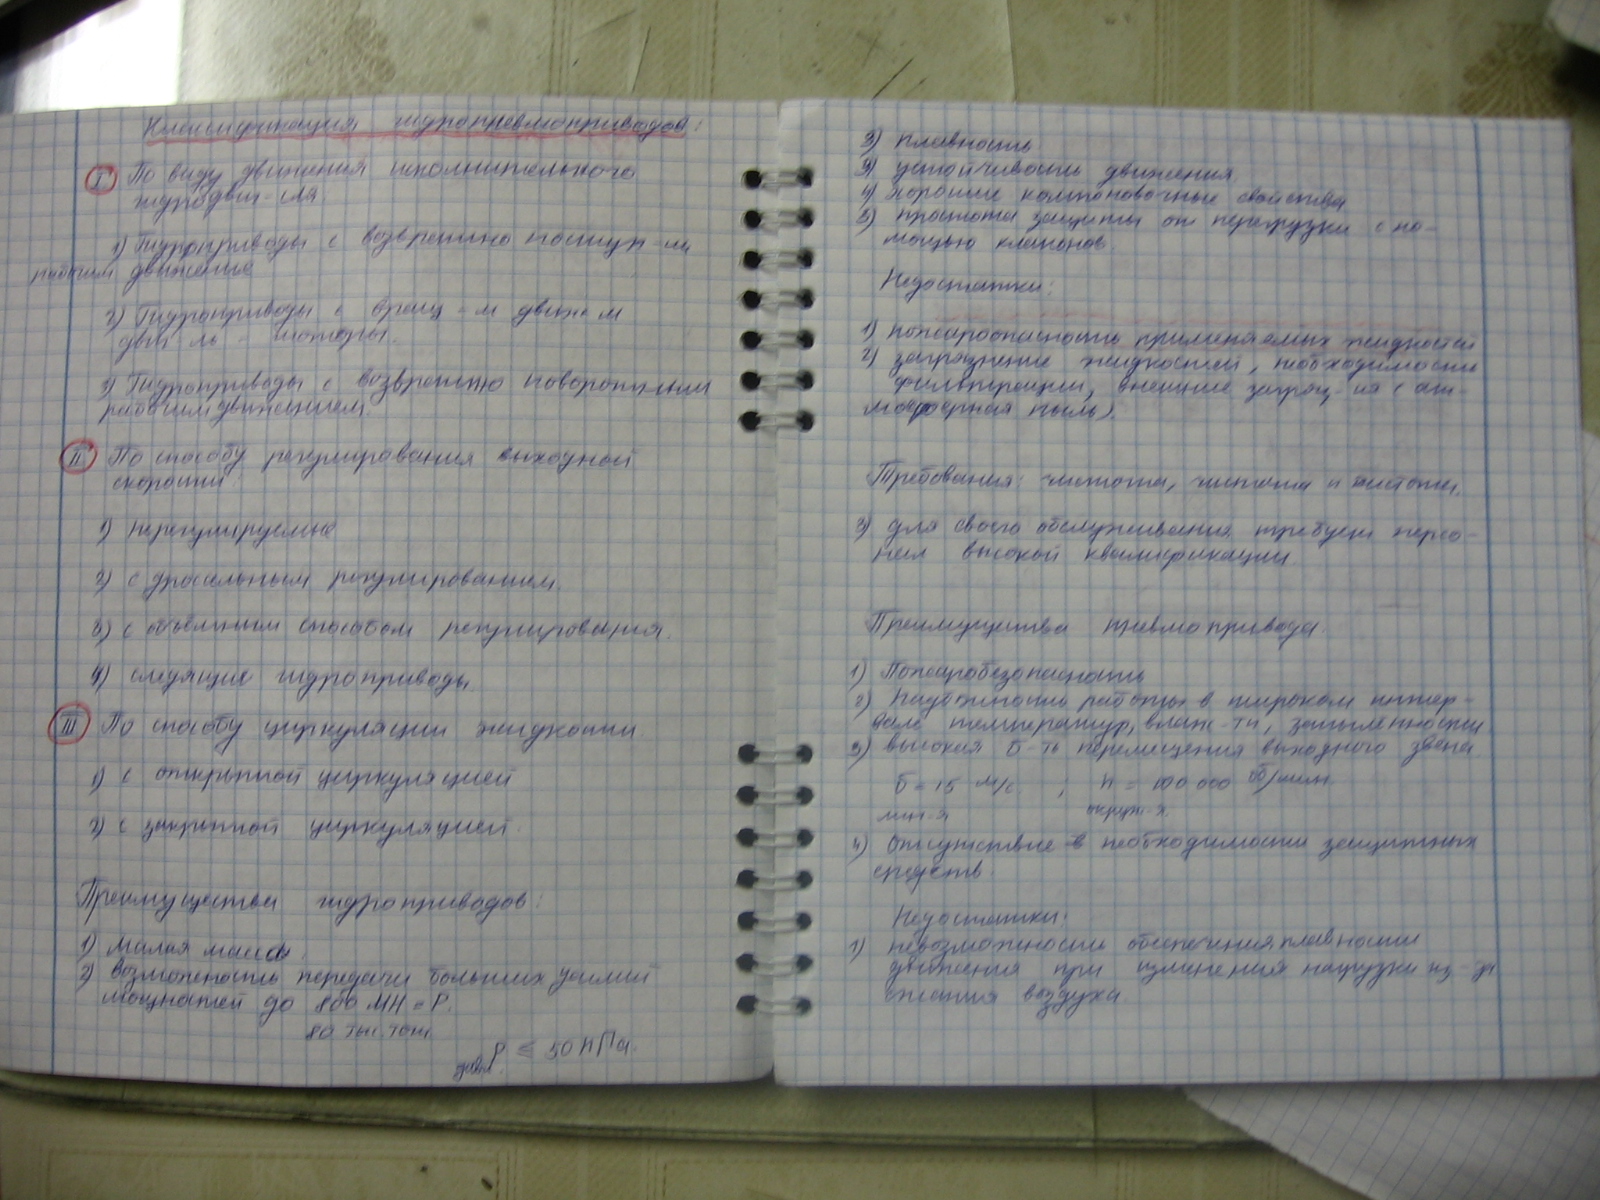 Классификация гидропневмоприводов:
I По виду движения исполнительного
гидродвиг-еля
1) Гидроприводы с возвратно поступ-м
рабочим движение
2) Гидроприводы с вращ-м движ-м
двиг-ль - моторы.
3) Гидроприводы с возвратно поворотным
рабочим движением.
II По способу регулирования выходной
скорости:
1) нерегулируемые
2) с дросельным регулированием.
3) с объёмным способом регулирования.
4) следящие гидроприводы
III По способу циркуляции жидкости.
1) с открытой циркуляцией
2) с закрытой циркуляцией.
Преимущества гидроприводов:
1) малая масса.
2) возможность передачи больших усилий
мощностей до 800 МН = Р.
80 тыс. тонн
давл. P ≤ 50 МПа.
3) плавность
3) устойчивость движения
4) хорошие компоновочные свойства
5) простота защиты от перегрузки с по-
мощью клапанов
Недостатки:
1) пожароопасность применяемых жидкостей
2) загрязнение жидкостей, необходимость
фильтрации, внешние загряз-ия (ат-
мосферная пыль).
Требования: чистота, чистота и чистота.
3) для своего обслуживания требует персо-
нал высокой квалификации.
Преимущества пневмопривода.
1) Пожаробезопасность
2) Надёжность работы в широком интер-
вале температур, влаж-ти, запылённости
3) высокая б-ть перемещения выходного звена
б = 15 м/с ; n = 100 000 об/мин.
лин-я окруж-я.
4) Отсутствие в необходимости защитных
средств.
Недостатки:
1) невозможность обеспечения плавности
движения при изменения нагрузки из-за
сжатия воздуха.